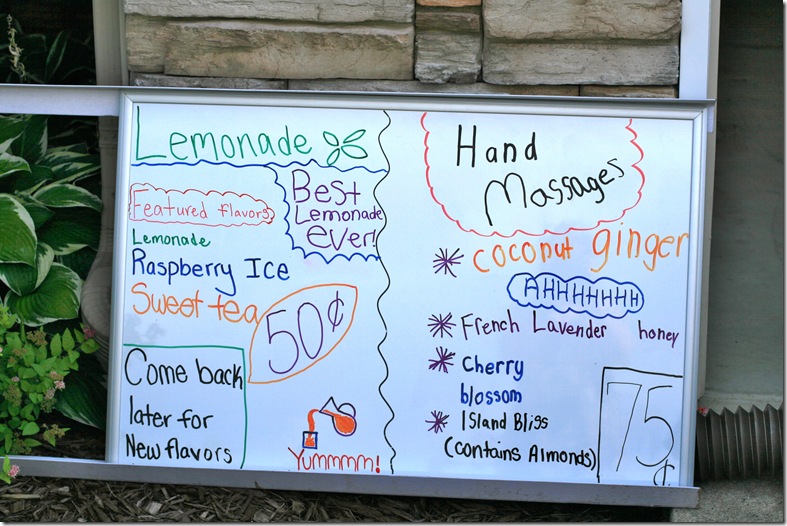 Lemonade
Best
Lemonade
ever!
Featured flavors
Lemonade
Raspberry Ice
Sweet tea
50¢
Come back
later for
New flavors
Yummmm!
Hand
Massages
coconut ginger
AHHHHHHH
French Lavender honey
Cherry
blossom
Island Bliss
(contains Almonds)
75¢